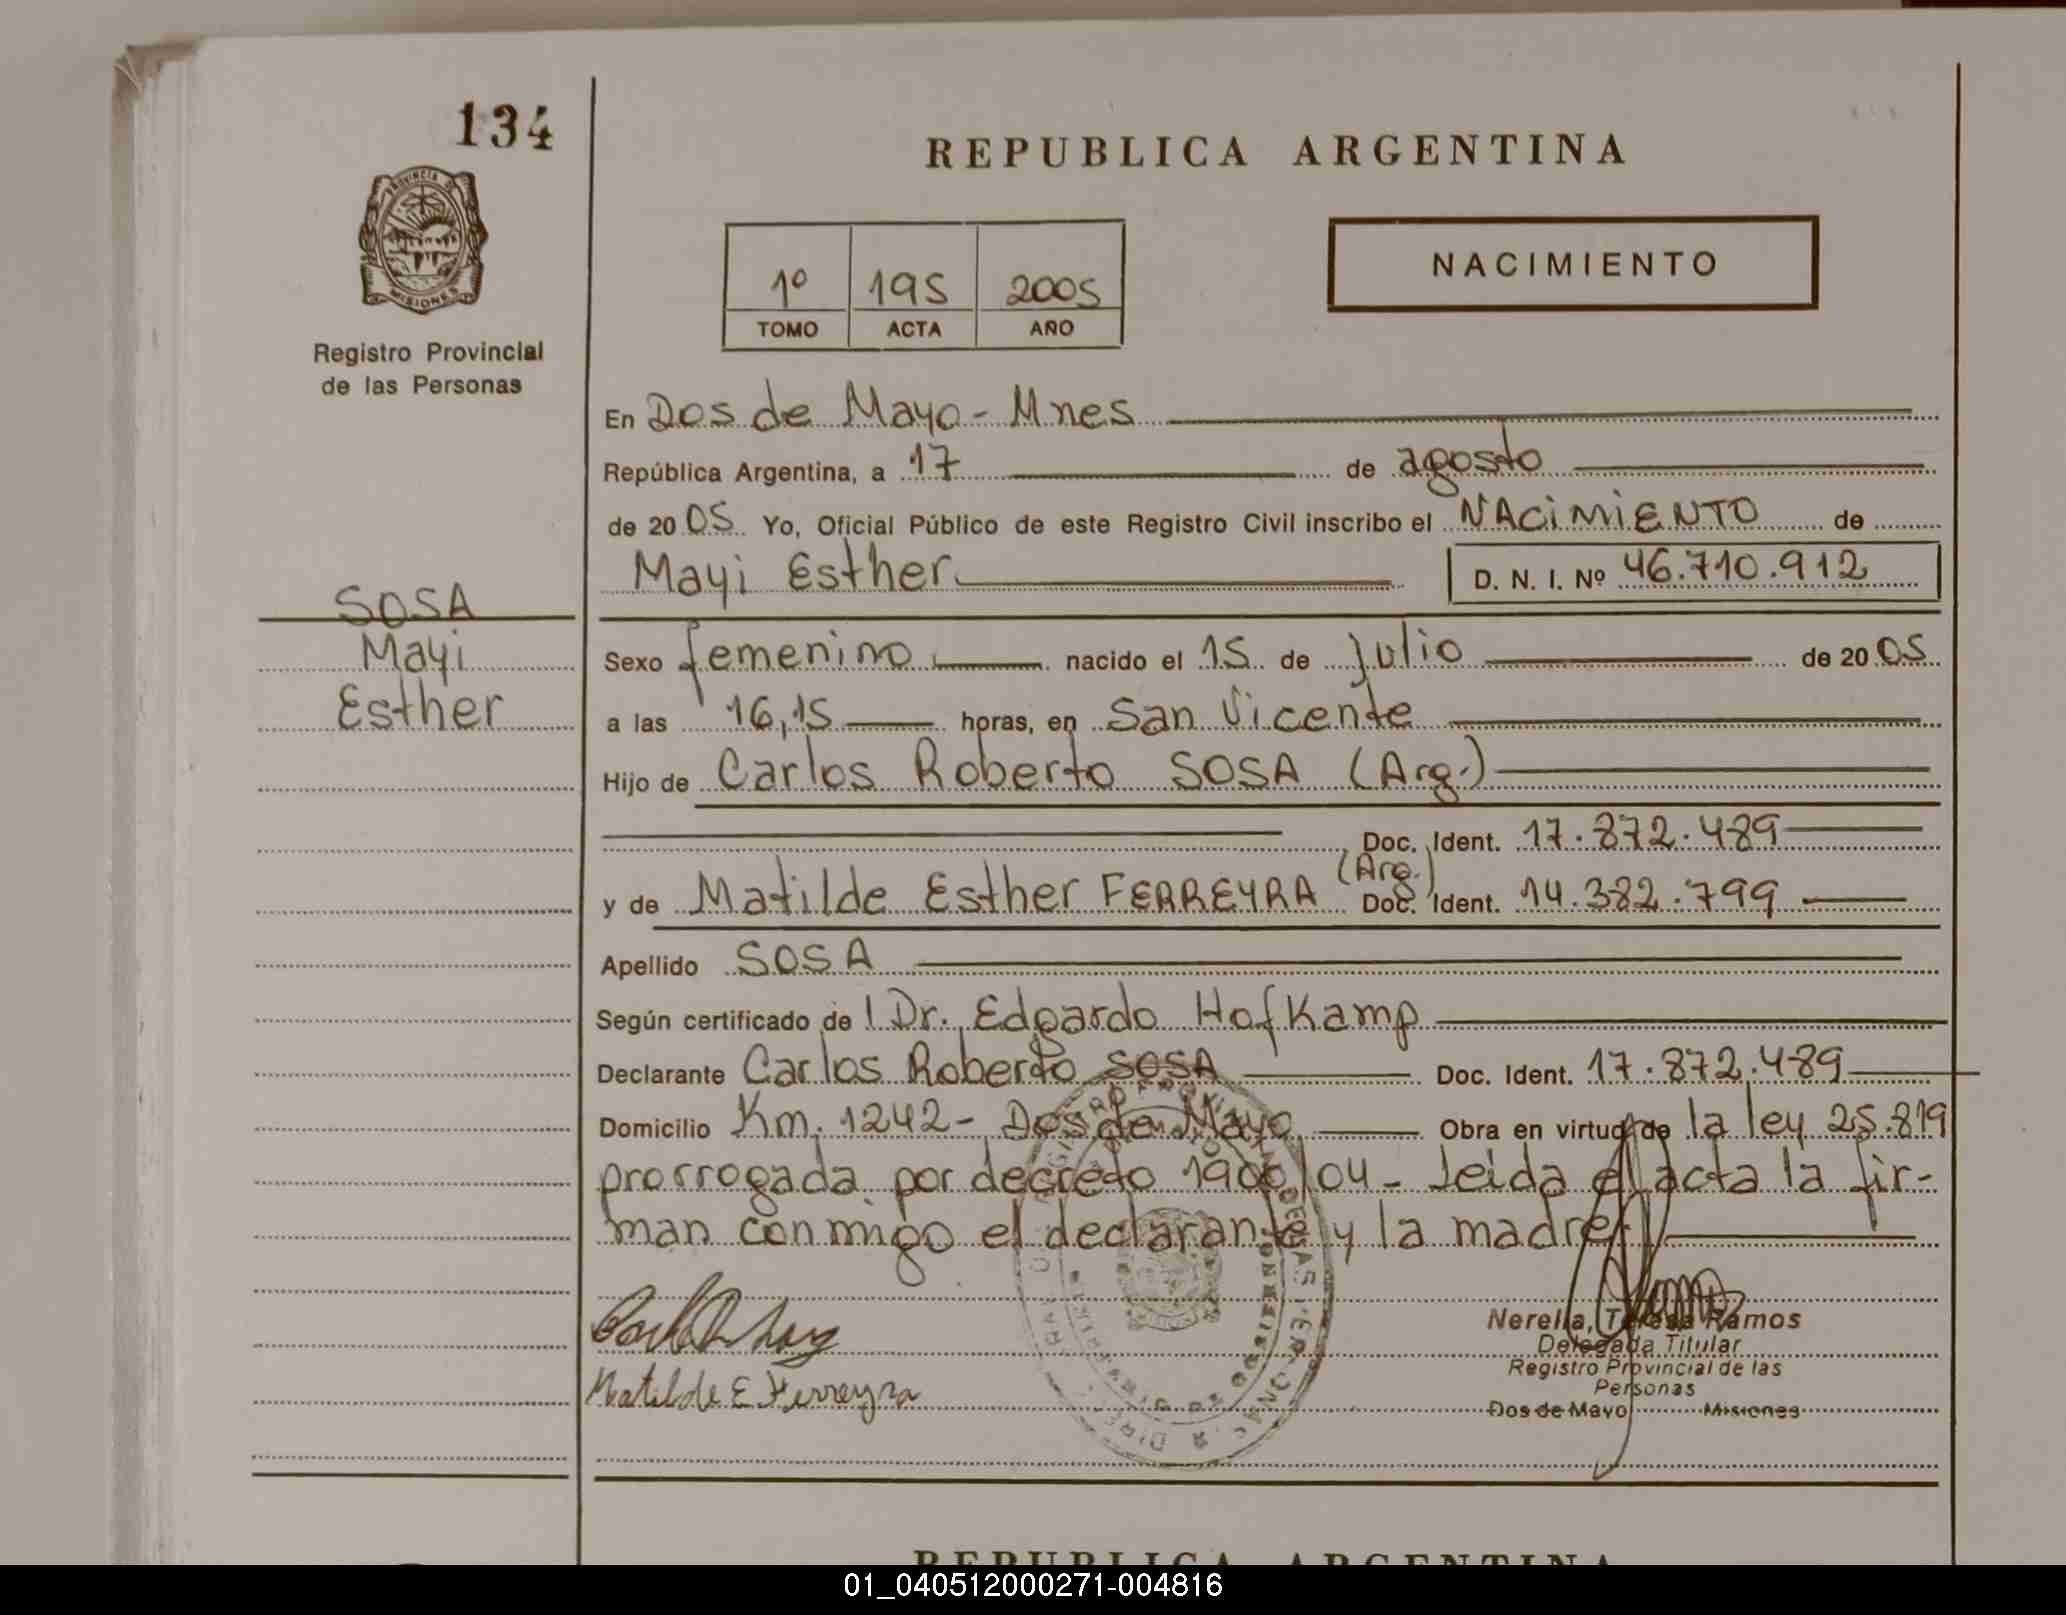 134
REPUBLICA ARGENTINA
PROVINCIA DE
MISIONES
Registro Provincial
de las Personas
1º 195 2005
TOMO ACTA AÑO
NACIMIENTO
En Dos de Mayo - Mnes
República Argentina, a 17 de agosto
de 20 05 Yo, Oficial Público de este Registro Civil inscribo el NACiMiENTO de
Mayi Esther D. N. I. Nº 46.710.912
SOSA
Mayi
Esther
Sexo femenino nacido el 15 de Julio de 20 05
a las 16,15 horas, en San Vicente
Hijo de Carlos Roberto SOSA (Arg.)
Doc. Ident. 17.872.489
y de Matilde Esther FERREYRA (Arg.) Doc. Ident. 14.382.799
Apellido SOSA
Según certificado de l Dr. Edgardo Hofkamp
Declarante Carlos Roberto SOSA Doc. Ident. 17.872.489
Domicilio Km. 1242 - Dos de Mayo Obra en virtud de la ley 25.819
prorrogada por decreto 1900/04 - Leida el acta la fir-
man conmigo el declarante y la madre
Matilde E Ferreyra
Nerella, Teresa Ramos
Delegada Titular
Registro Provincial de las
Personas
Dos de Mayo Misiones
REPUBLICA ARGENTINA
01_040512000271-004816